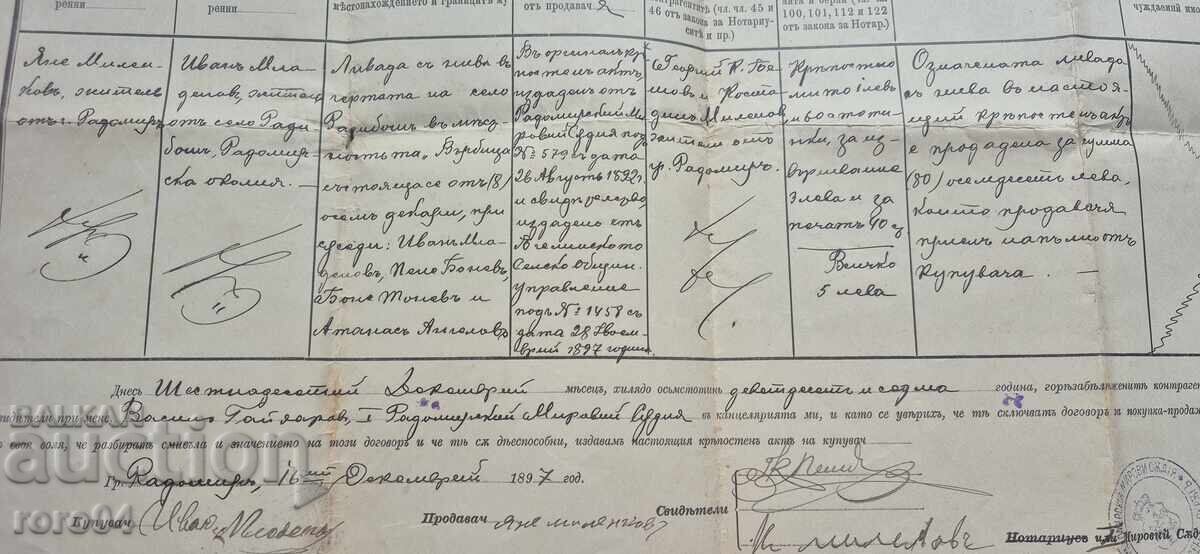 ренни
ренни
мѣстонахождението и границитѣ му
отъ продавача
контрагентитѣ (чл. чл. 45 и
46 отъ закона за Нотариу-
ситѣ и пр.)
100, 101, 112 и 122
отъ закона за Нотар.)
чуждаений имо
Яне Милен-
ковъ, жителъ
отъ г. Радомиръ
Иванъ Мла-
деновъ, жителъ
отъ село Ради-
бошъ, Радомир-
ска околия. —
Ливада съ нива въ
чертата на село
Радибошъ въ мѣст-
ностьта „Върбица
състояща се отъ (8)
осемъ декари, при
съседи: Иванъ Мла-
деновъ, Пене Боневъ,
Боне Тоневъ и
Атанасъ Ангеловъ
Въ оргиналъ кръ-
постенъ актъ,
издаденъ отъ
Радомирский Ми-
ровий Съдия подъ
№ 579 съ дата
26 Августъ 1892 г.
и свидѣтелство
издадено отъ
Селско Общин.
управление
подъ № 1458 съ
дата 28 Ноем-
врий 1897 година
Георгий К. Пе-
шовъ и Коста
динъ Миленовъ
жители отъ
гр. Радомиръ.
Крѣпостно
мито 1 левъ
и востоти-
нки, за из-
вършвание
3 лева и за
печатъ 40 с.
Всичко
5 лева
Означената ливада
съ нива въ настоя-
щий крѣпостенъ актъ
е продадена за сумма
(80) осемдесетъ лева,
които продавача
приелъ напълно отъ
купувача. —
Днесь Шестнадесетий Декемврий мѣсецъ, хилядо осьмстотинъ деветдесеть и седма година, горѣзабѣлѣженитѣ контраген
свидители при мене Василъ Гайтаровъ, I Радомирский Мировий Съдия въ канцелярията ми, и като се увѣрихъ, че тѣ сключватъ договоръ за покупка-продаж
по своя воля, че разбиратъ смисъла и значението на този договоръ и че тѣ сѫ дѣеспособни, издавамъ настоящия крѣпостенъ актъ на купувач
Гр. Радомиръ, 16ий Декемврий 1897 год.
Купувачъ
Продавачъ Яне Миленковъ
Свидѣтели
К Миленовъ
Нотариусъ или Мировий Сѫд
BALKAN
auction
roro94